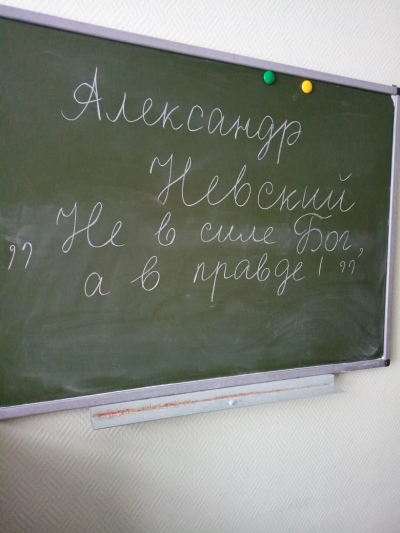 Александр
Невский
„Не в силе Бог,
а в правде!”